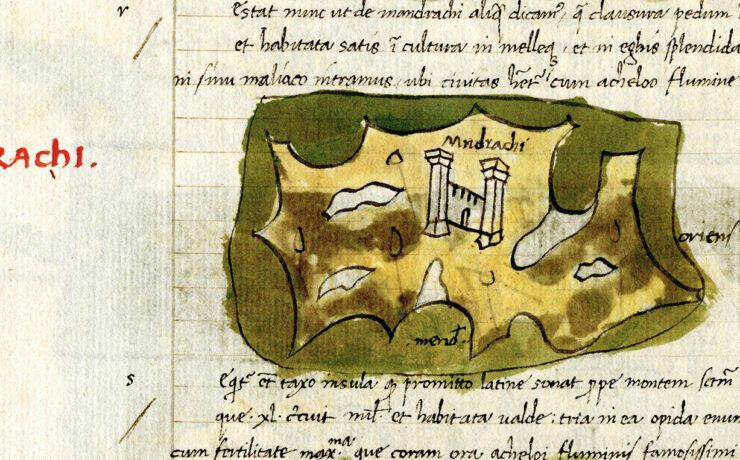 r
Estat nunc ut de mandrachi aliq dicam', q clausura pedum
et habitata satis i cultura in melleq, et in eghis splendida
ni sinu maliaco intramus, ubi civitas het' cum acheloo flumine
RACHI.
Mndrachi
oriens
merid'
s
Eqt' et taxo insula q promitto latine sonat ppe montem sctm
que .xl. circuit mil' et habitata valde: tria in ea opida enum
cum fertilitate max.ma que coram ora acheloi fluminis famosissimi